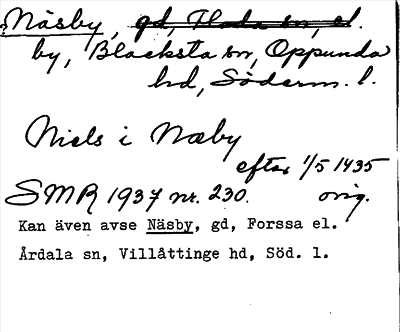 Näsby, gd, Floda sn, el.
by, Blacksta sn, Oppunda
hd, Söderm. l.
Niels i Næby
efter 1/5 1435
SMR 1937 nr. 230. orig.
Kan även avse Näsby, gd, Forssa el.
Årdala sn, Villåttinge hd, Söd. l.